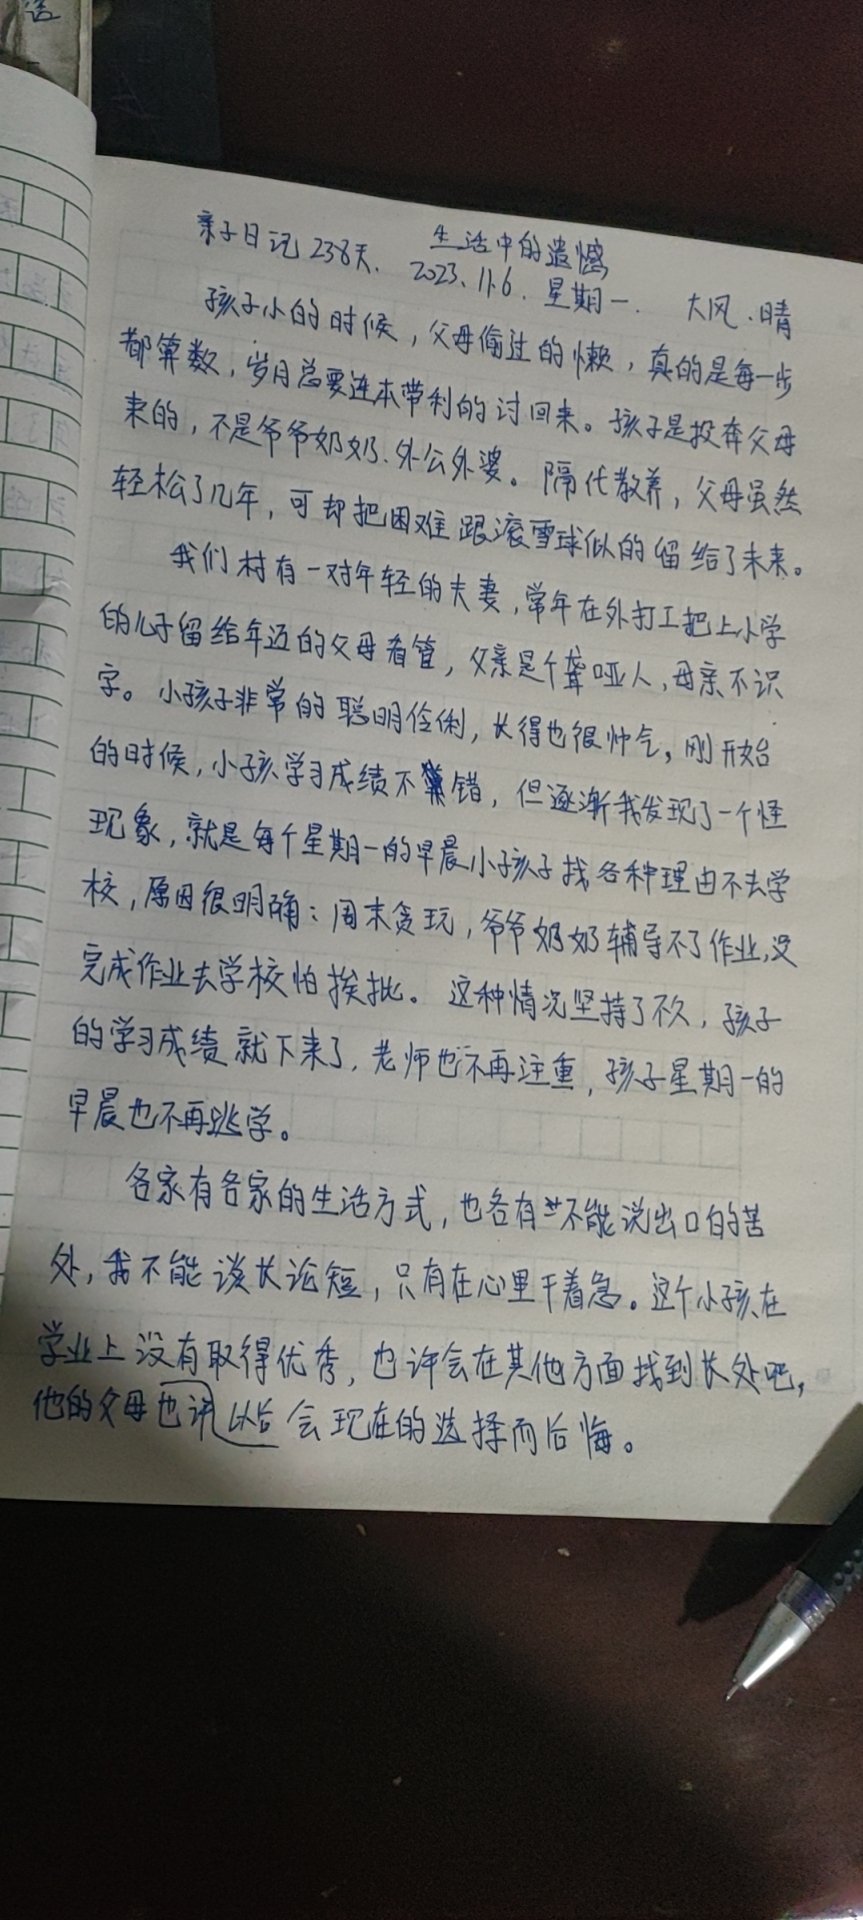 话
生活中的遗憾
亲子日记238天. 2023.11.6. 星期一. 大风.晴
孩子小的时候，父母偷过的懒，真的是每一步
都算数，岁月总要连本带利的讨回来。孩子是投奔父母
来的，不是爷爷奶奶.外公外婆。隔代教养，父母虽然
轻松了几年，可却把困难跟滚雪球似的留给了未来。
我们村有一对年轻的夫妻，常年在外打工把上小学
的儿子留给年迈的父母看管，父亲是个聋哑人，母亲不识
字。小孩子非常的聪明伶俐，长得也很帅气，刚开始
的时候，小孩学习成绩不错，但逐渐我发现了一个怪
现象，就是每个星期一的早晨小孩子找各种理由不去学
校，原因很明确：周末贪玩，爷爷奶奶辅导不了作业，没
完成作业去学校怕挨批。这种情况坚持了不久，孩子
的学习成绩就下来了，老师也不再注重，孩子星期一的
早晨也不再逃学。
各家有各家的生活方式，也各有些不能说出口的苦
处，我不能谈长论短，只有在心里干着急。这个小孩在
学业上没有取得优秀，也许会在其他方面找到长处吧，
他的父母也许以后会现在的选择而后悔。